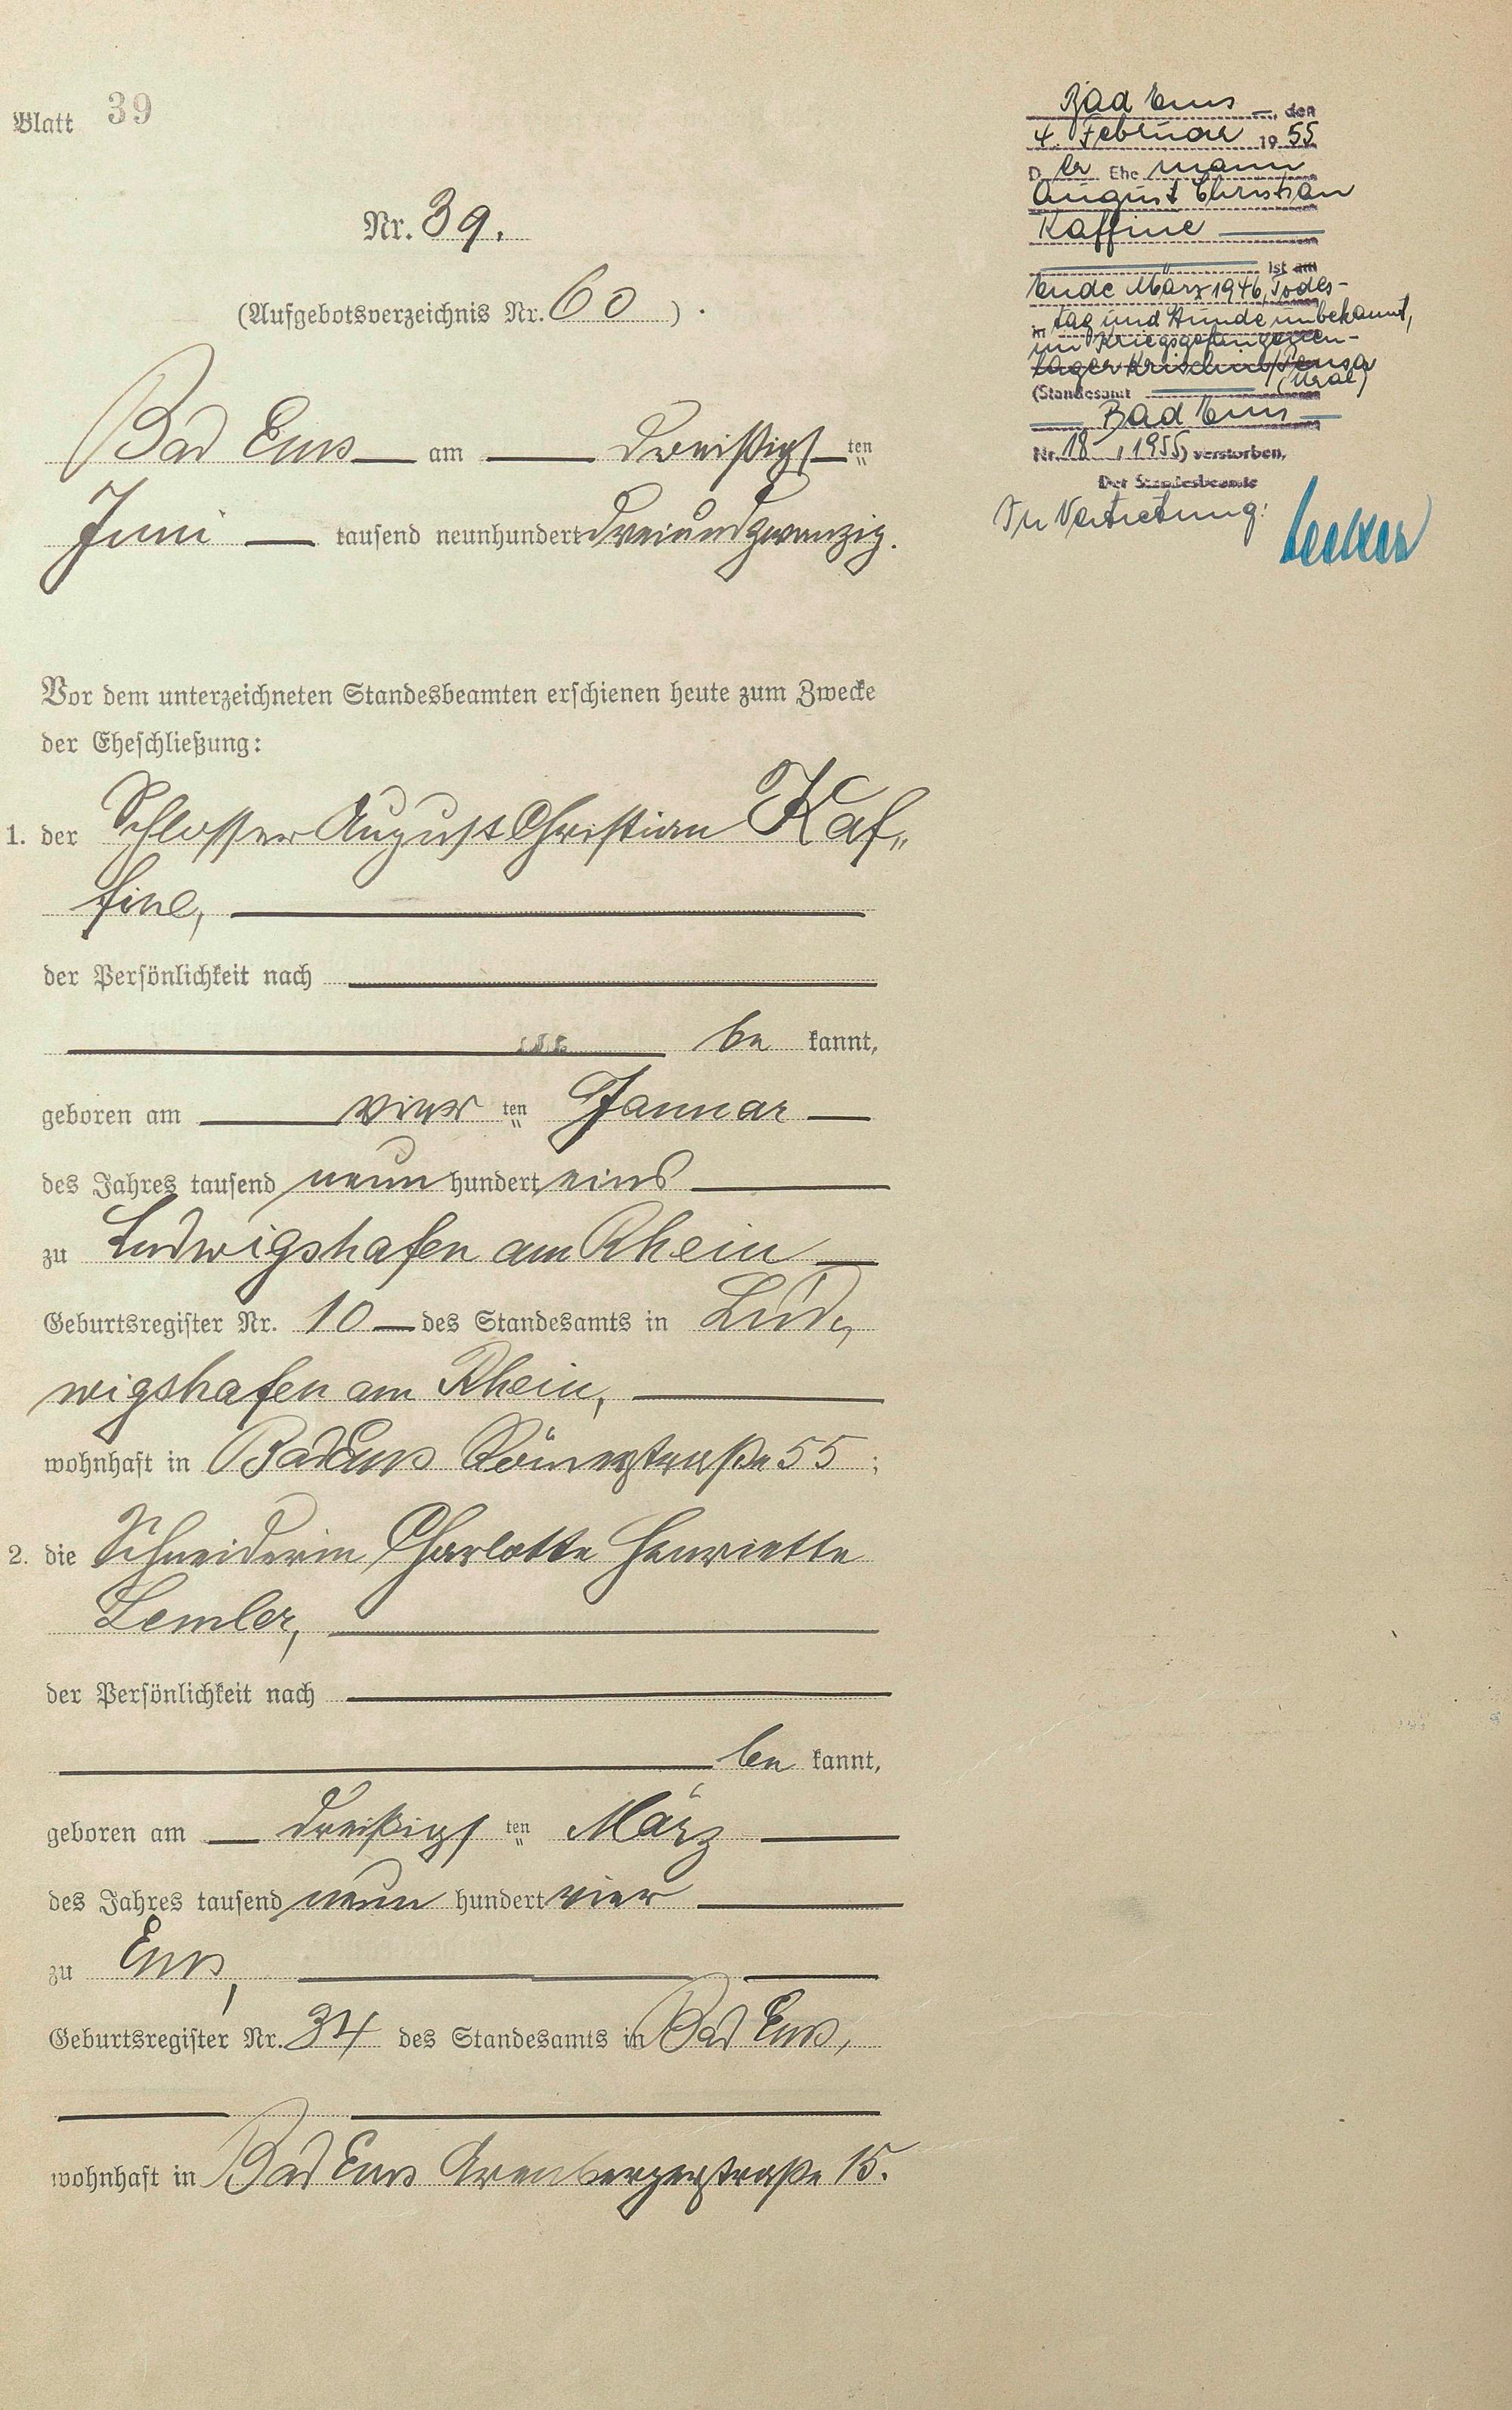 Blatt 39
Nr. 39.
(Aufgebotsverzeichnis Nr. 60).
Bad Ems am dreißigsten
Juni tausend neunhundert dreiundzwanzig.
Vor dem unterzeichneten Standesbeamten erschienen heute zum Zwecke
der Eheschließung:
1. der Schlosser August Christian Kaf-
fine,
der Persönlichkeit nach
be kannt,
geboren am vier ten Januar
des Jahres tausend neun hundert eins
zu Ludwigshafen am Rhein
Geburtsregister Nr. 10 des Standesamts in Lud-
wigshafen am Rhein,
wohnhaft in Bad Ems Römerstraße 55;
2. die Schneiderin Charlotte Henriette
Lemler,
der Persönlichkeit nach
be kannt,
geboren am dreißigsten März
des Jahres tausend neun hundert vier
zu Ems,
Geburtsregister Nr. 34 des Standesamts in Bad Ems,
wohnhaft in Bad Ems Arenbergerstraße 15.
Bad Ems, den
4. Februar 1955
Der Ehemann
August Christian
Kaffine
ist am
Ende März 1946, Todes-
in tag und Stunde unbekannt,
im Kriegsgefangenen-
lager /Pensa
(Ural)
(Standesamt
Bad Ems
Nr. 18, 1955) verstorben.
Der Standesbeamte
In Vertretung: